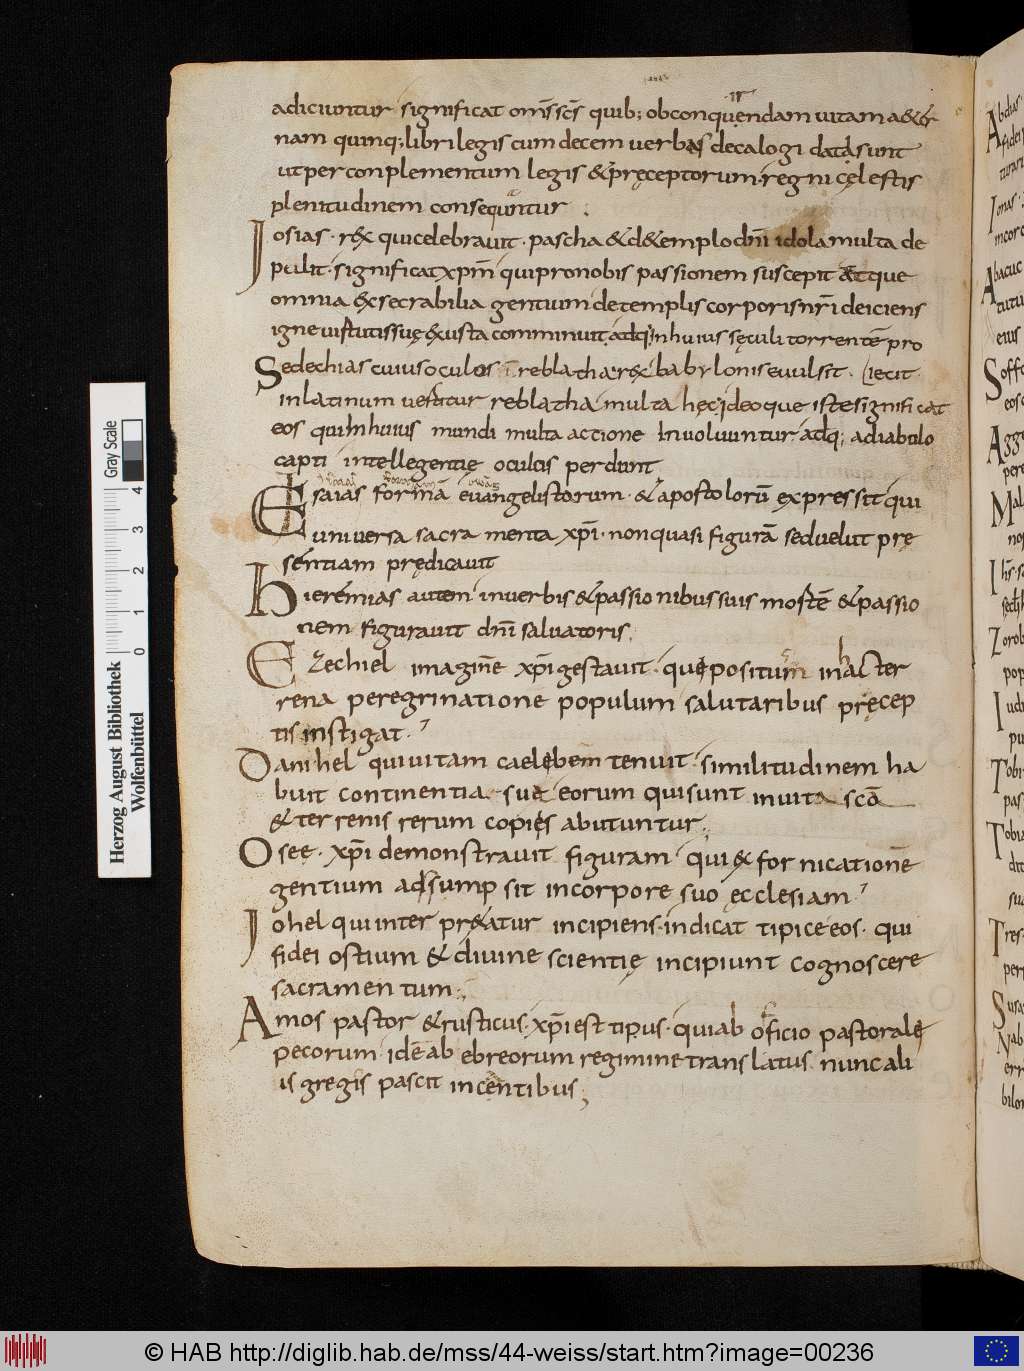 adiciuntur significat om̅s sc̅s quib; obconquendam uitam a&er
nam quinq; libri legis cum decem uerbis decalogi data sunt
ut per conplementum legis & pręceptorum regni cęlestis
plenitudinem consequntur
Iosias· rex qui celebrauit· pascha & d& emplo dn̅i idola multa de
pulit· significat xpm̅ qui pro nobis passionem suscepit & que
omnia exsecrabilia gentium de templis corporis nr̅i deiciens
igne uirtutis suę exusta comminuit adq; in huius sęculi torrente̅ pro
Sedechias cuius oculos in reblatha rex babylonis euulsit· (iecit·
in latinum uertitur reblatha multa hęc ideoque iste significat
eos qui in huius mundi multa actione inuoluuntur adq; a diabulo
capti intellegentię oculus perdunt
Esaias forma̅ euangelistorum· & apostoloru̅ expressit qui
uniuersa sacramenta xp̅i· non quasi figura̅ sed uelut prę
sentiam prędicauit
Hieremias autem in uerbis & passionibus suis morte̅ & passio
nem figurauit dn̅i saluatoris;
Ezechiel imagine̅ xp̅i gestauit· que positum in hac ter
rena peregrinatione populum salutaribus pręcep
tis instigat·
Danihel qui uitam caelebem tenuit· similitudinem ha
buit continentia sua eorum qui sunt in uita sc̅a
& terrenis rerum copięs abutuntur;
Osee· xp̅i demonstrauit figuram qui ex fornicatione̅
gentium adsumpsit in corpore suo ęcclesiam
Iohel qui interpr&atur incipiens· indicat tipice eos· qui
fidei ostium & diuine scientię incipiunt cognoscere
sacramentum;
Amos pastor & rusticus· xp̅i est tipus· qui ab officio pastorale
pecorum id e̅ ab ebreorum regimine translatus nunc ali
is gregis pascit in centibus;
Herzog August Bibliothek
Wolfenbüttel
0 1 2 3 4
Gray Scale
© HAB http://diglib.hab.de/mss/44-weiss/start.htm?image=00236